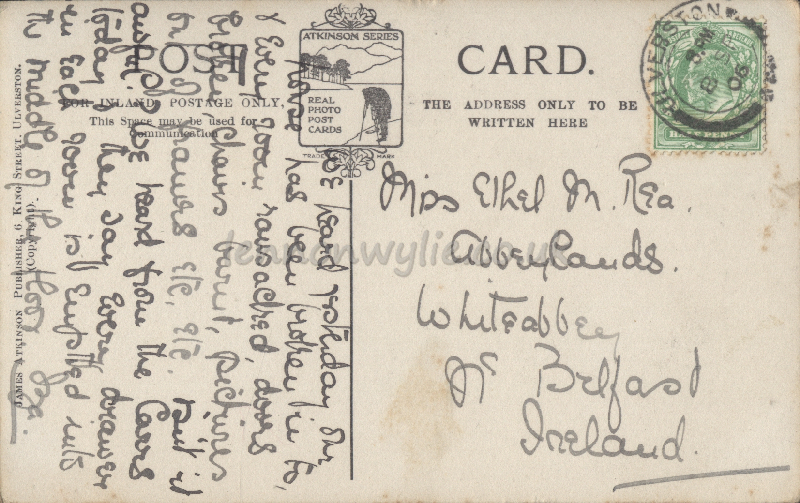 POST CARD.
ATKINSON SERIES
REAL
PHOTO
POST
CARDS
TRADE MARK
FOR INLAND POSTAGE ONLY,
This Space may be used for
Communication
THE ADDRESS ONLY TO BE
WRITTEN HERE
ULVERSTON
06
HALFPENNY
Miss Ethel M. Rea.
Abbeylands.
Whiteabbey
Nr Belfast
Ireland.
We heard yesterday our
house has been broken into,
& every room ransacked, doors
broken, chairs burnt, pictures
out of frames etc, etc. Isn't it
awful. We heard from the Carrs
today. They say every drawer
in each room is emptied into
the middle of the floor.
JAMES ATKINSON PUBLISHER, 6, KING STREET, ULVERSTON.
(Copyright).
lennonwylie.co.uk